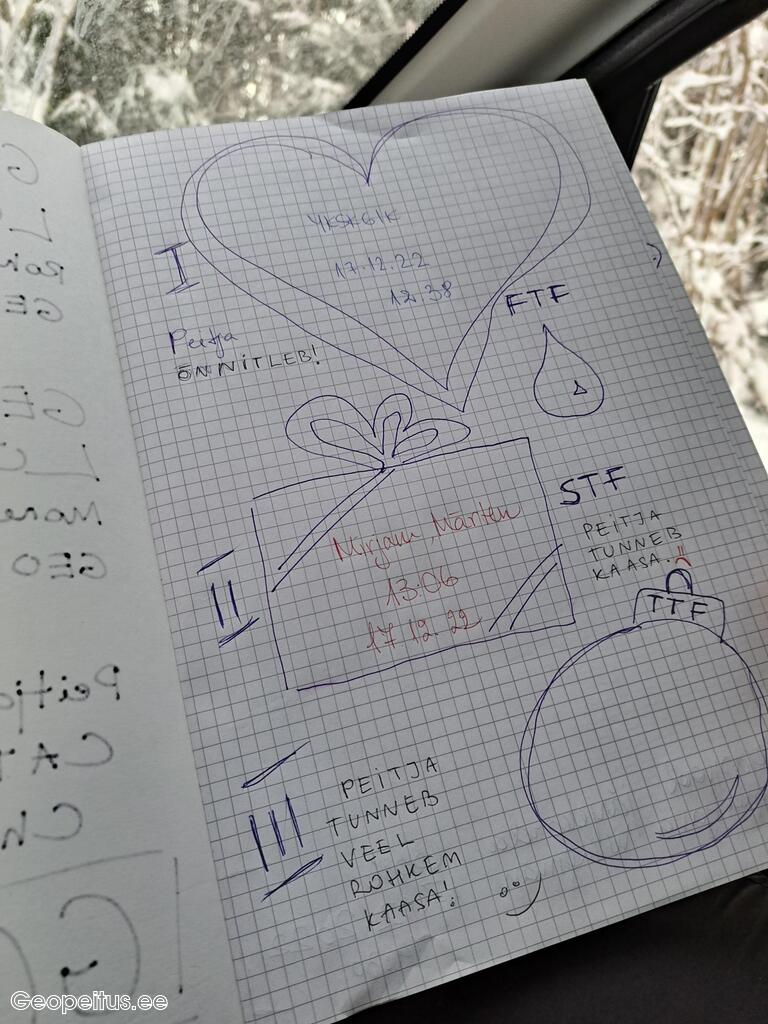 I
YKSKÕIK
17.12.22
12 38
FTF
Peitja
ÕNNITLEB!
II
Mirjam, Märten
13.06
17 12 22
STF
PEITJA
TUNNEB
KAASA.
TTF
III
PEITJA
TUNNEB
VEEL
ROHKEM
KAASA!
Geopeitus.ee